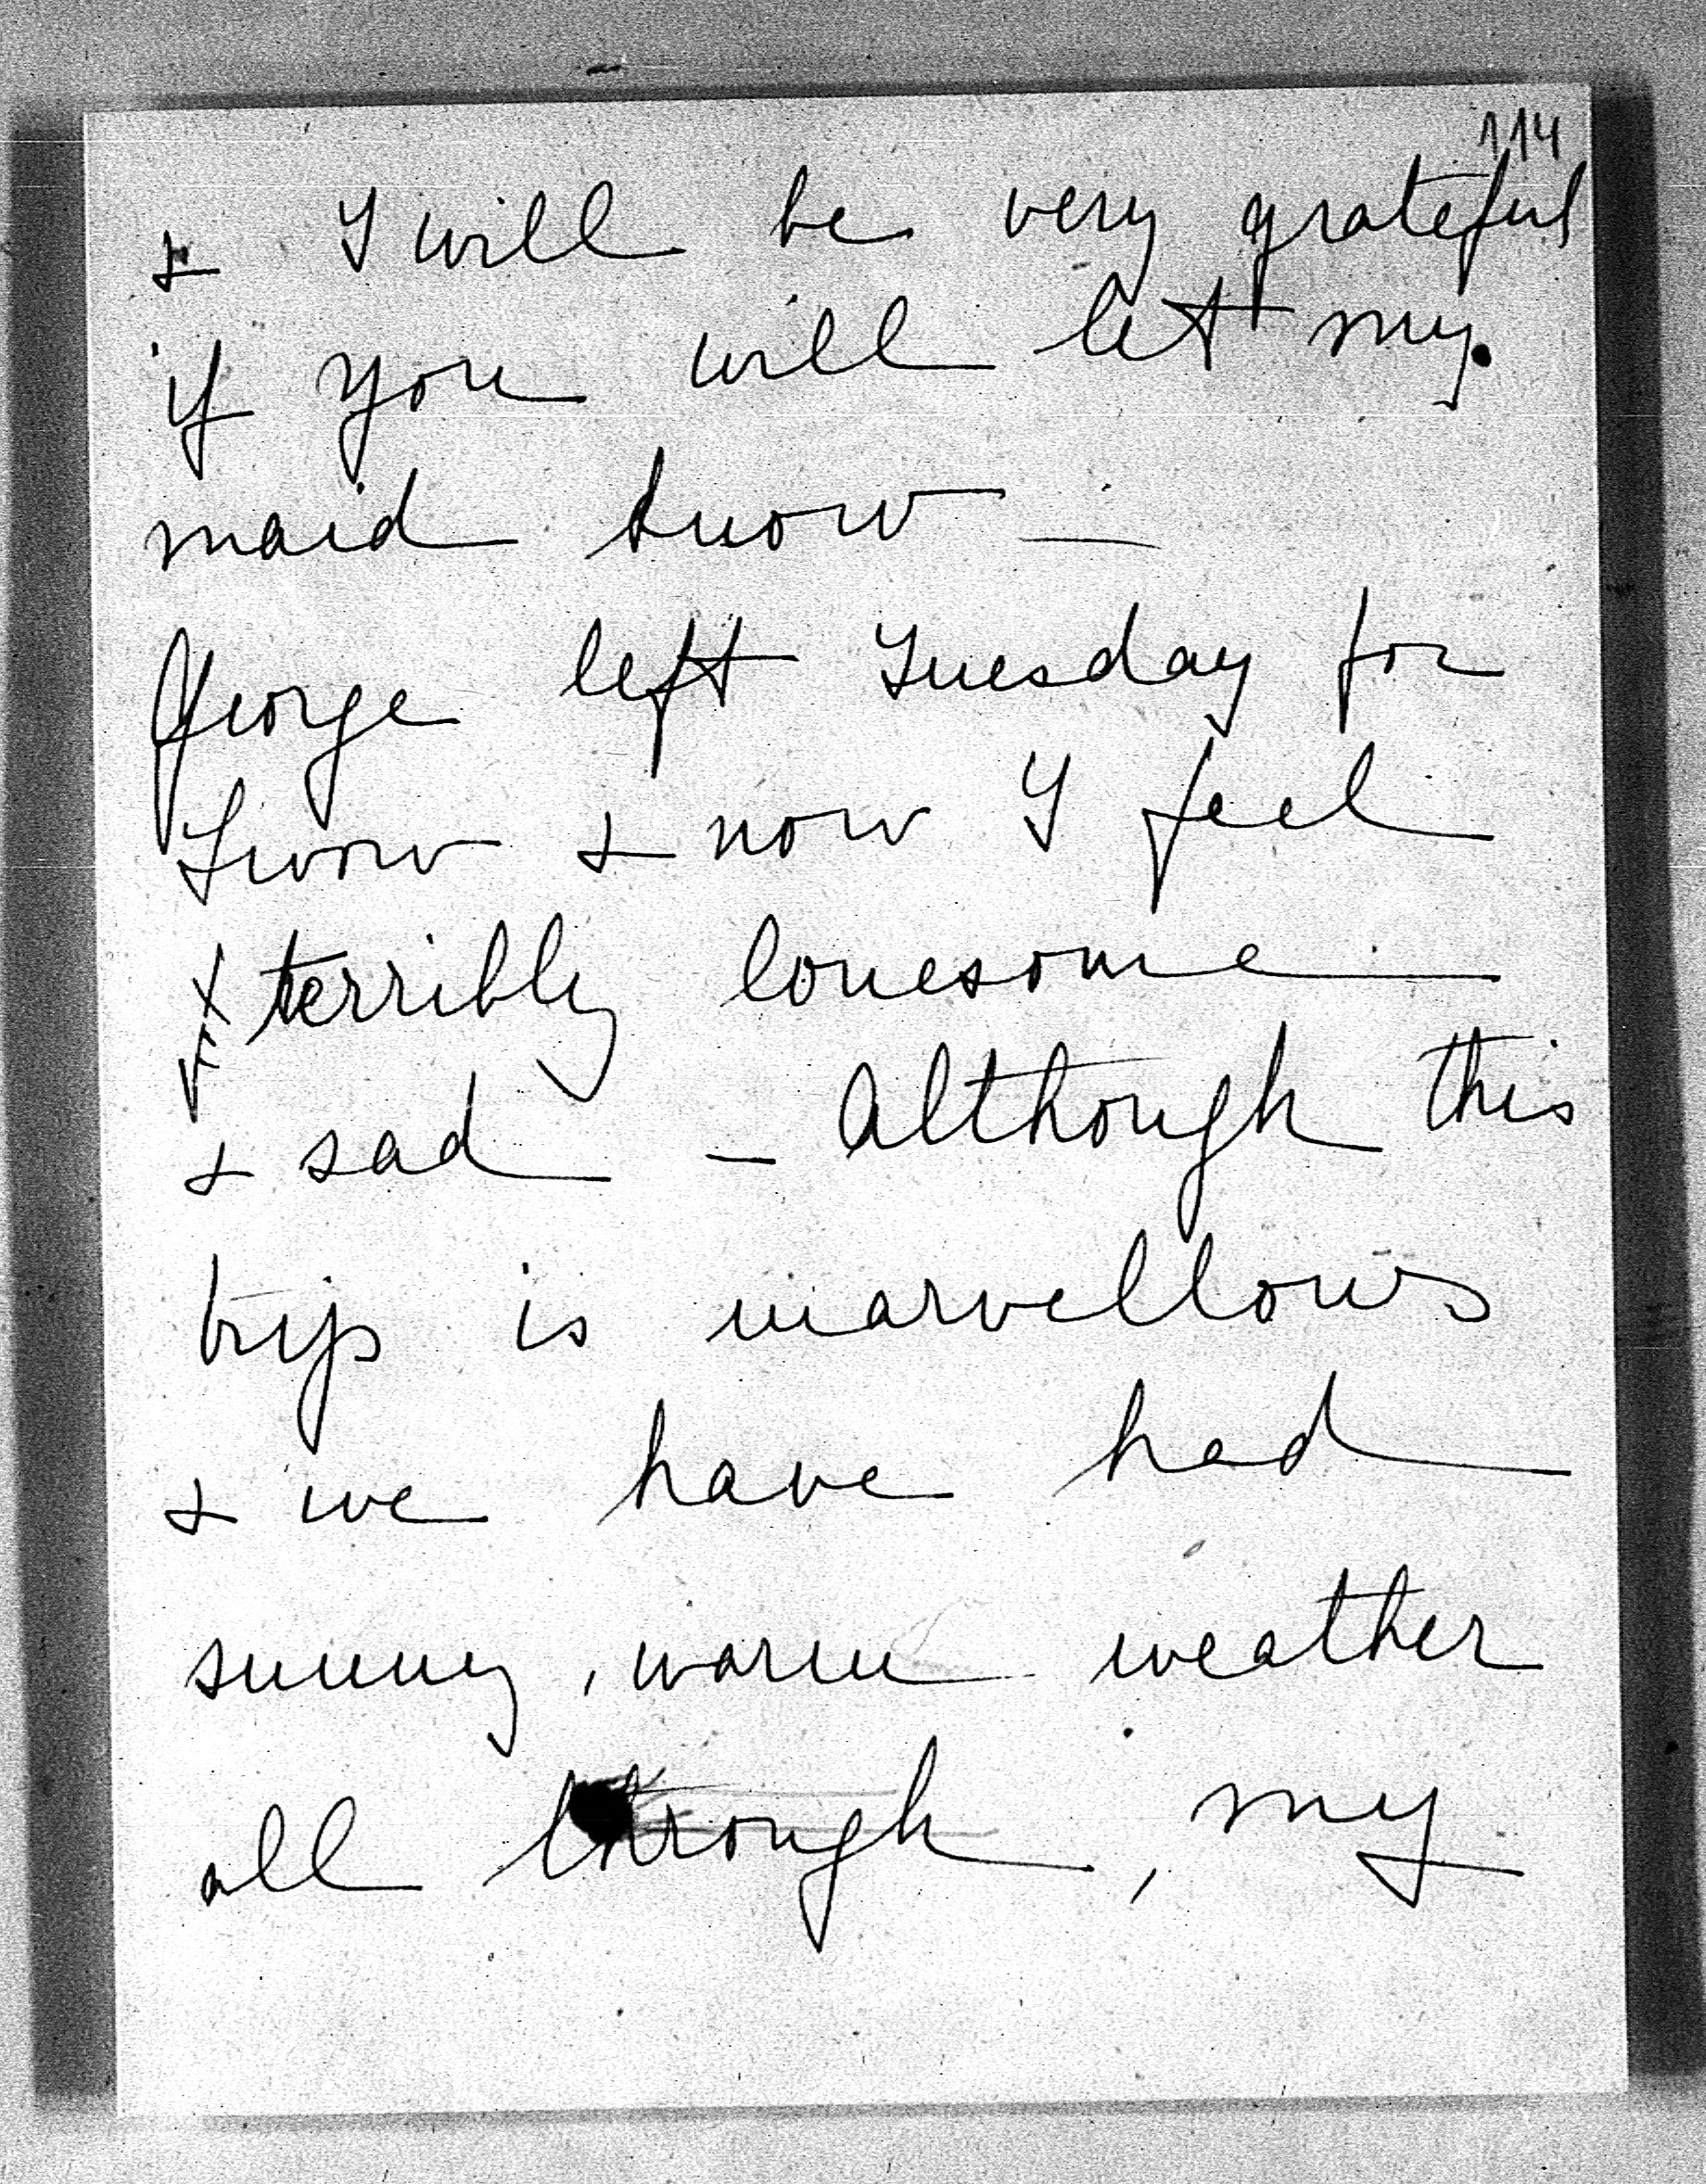 114
& I will be very grateful
if you will let my
maid know —
George left Tuesday for
Lwow & now I feel
terribly lonesome
& sad — Although this
trip is marvellous
& we have had
sunny, warm weather
all through, my